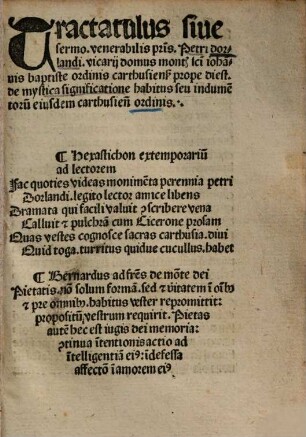 Tractatulus siue
sermo. venerabilis pr̃is. Petri dor
landi. vicarij domus mont͛ sc̃i ioha
nis baptiste ordinis carthusiens͛ prope diest.
de mystica significatione habitus seu indumẽ
torũ eiusdem carthusieñ ordinis.
¶ Hexastichon extemporariũ
ad lectorem
Fac quoties videas monimẽta perennia petri
Dorlandi. legito lector amice libens
Dramata qui facili valuit ꝯscribere vena
Calluit ⁊ pulchrã cum Cicerone prosam
Quas vestes cognosce sacras carthusia. diui
Quid toga. turritus quidue cucullus. habet
¶ Bernardus ad fr̃es de mõte dei
Pietatis. nõ solum formã. sed ⁊ v̾itatem ĩ oĩbꝰ
⁊ pre omnibꝰ. habitus vester repromittit:
propositũ vestrum requirit. Pietas
autẽ hec est iugis dei memoria:
ꝯtinua ĩtentionis actio ad
ĩtelligentiã eiꝰ: ĩdefessa
affectio ĩ amorem eiꝰ